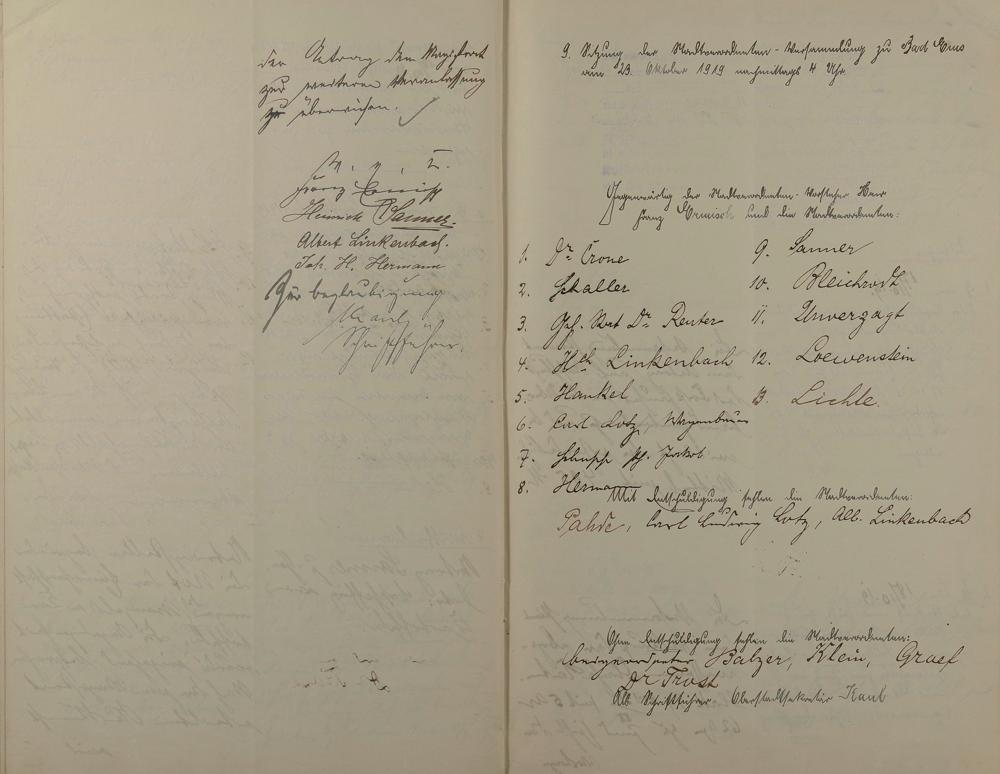 den Antrag dem Magistrat
zur weiteren Veranlassung
zu überweisen.
v. g. u.
Franz Ermisch
Heinrich Sanner
Albert Linkenbach.
Joh. H. Hermann
Zur Beglaubigung
Kaul
Schriftführer.
9. Sitzung der Stadtverordneten-Versammlung zu Bad Ems
am 23. Oktober 1919 nachmittags 4 Uhr.
Gegenwärtig der Stadtverordneten-Vorsteher Herr
Franz Ermisch und die Stadtverordneten:
1. Dr Crone
2. Schaller
3. Geh. Rat Dr Reuter
4. Hch Linkenbach
5. Hankel
6. Carl Lotz, Wagenbauer
7. Jakob
8. Hermann
9. Sanner
10. Bleichrodt
11. Unverzagt
12. Loewenstein
13. Lichle.
Mit Entschuldigung fehlen die Stadtverordneten:
Pahde, Carl Ludwig Lotz, Alb. Linkenbach
Ohne Entschuldigung fehlen die Stadtverordneten:
beigeordneter Balzer, Klein, Graef
Dr Trost
Als Schriftführer Oberstadtsekretär Kaul